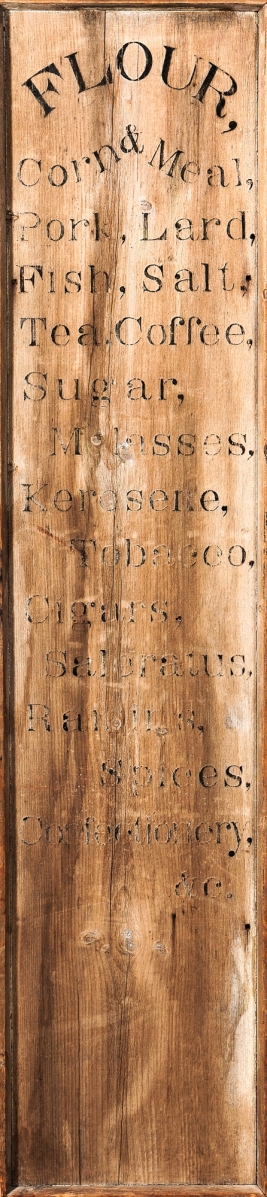 FLOUR,
Corn & Meal,
Pork, Lard,
Fish, Salt,
Tea, Coffee,
Sugar,
Molasses,
Kerosene,
Tobacco,
Cigars,
Saleratus,
Raisins,
Spices,
Confectionery,
&c.